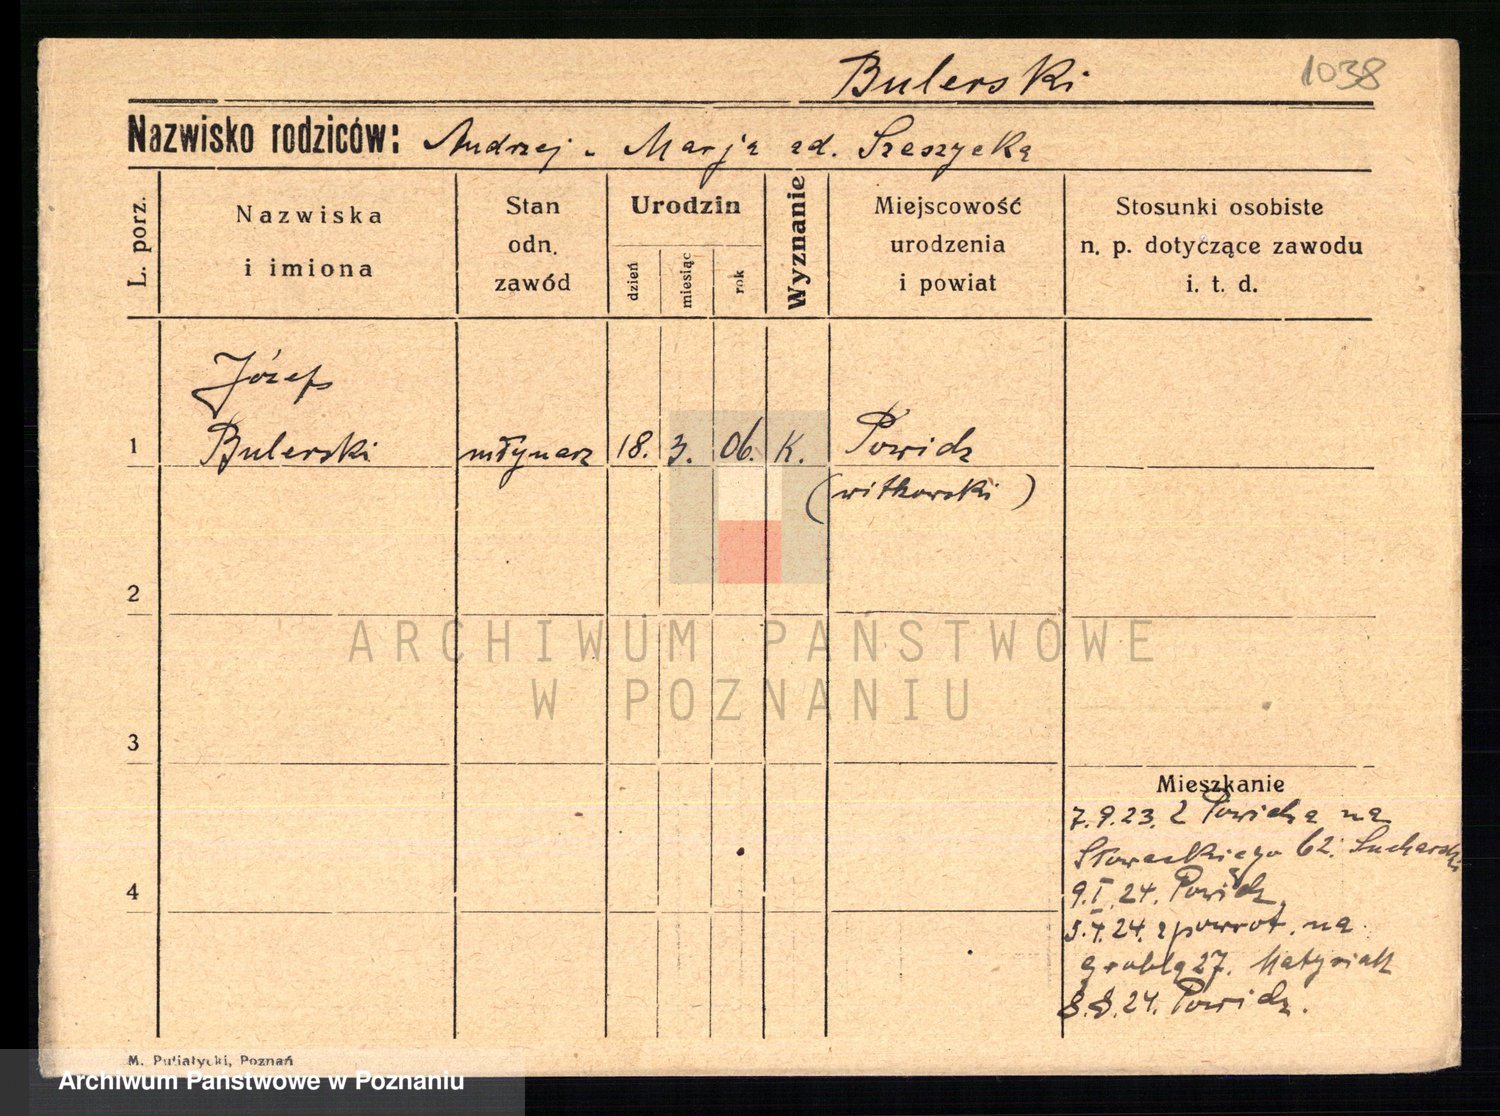 Bulerski
1038
Nazwisko rodziców: Andrzej . Marja zd. Szeszycka
L. porz.
Nazwiska
i imiona
Stan
odn.
zawód
Urodzin
dzień
miesiąc
rok
Wyznanie
Miejscowość
urodzenia
i powiat
Stosunki osobiste
n. p. dotyczące zawodu
i. t. d.
Józef
1 Bulerski młynarz 18. 3. 06. K. Powidz
(witkowski)
2
ARCHIWUM PAŃSTWOWE
W POZNANIU
3
Mieszkanie
7.9.23. z Powidza na
Słowackiego 62. Sucharski
4
9.I.24. Powidz,
24. zpowrot. na
groblą 27. Matysiak
8.8.24. Powidz.
M. Putiatycki, Poznań
Archiwum Państwowe w Poznaniu